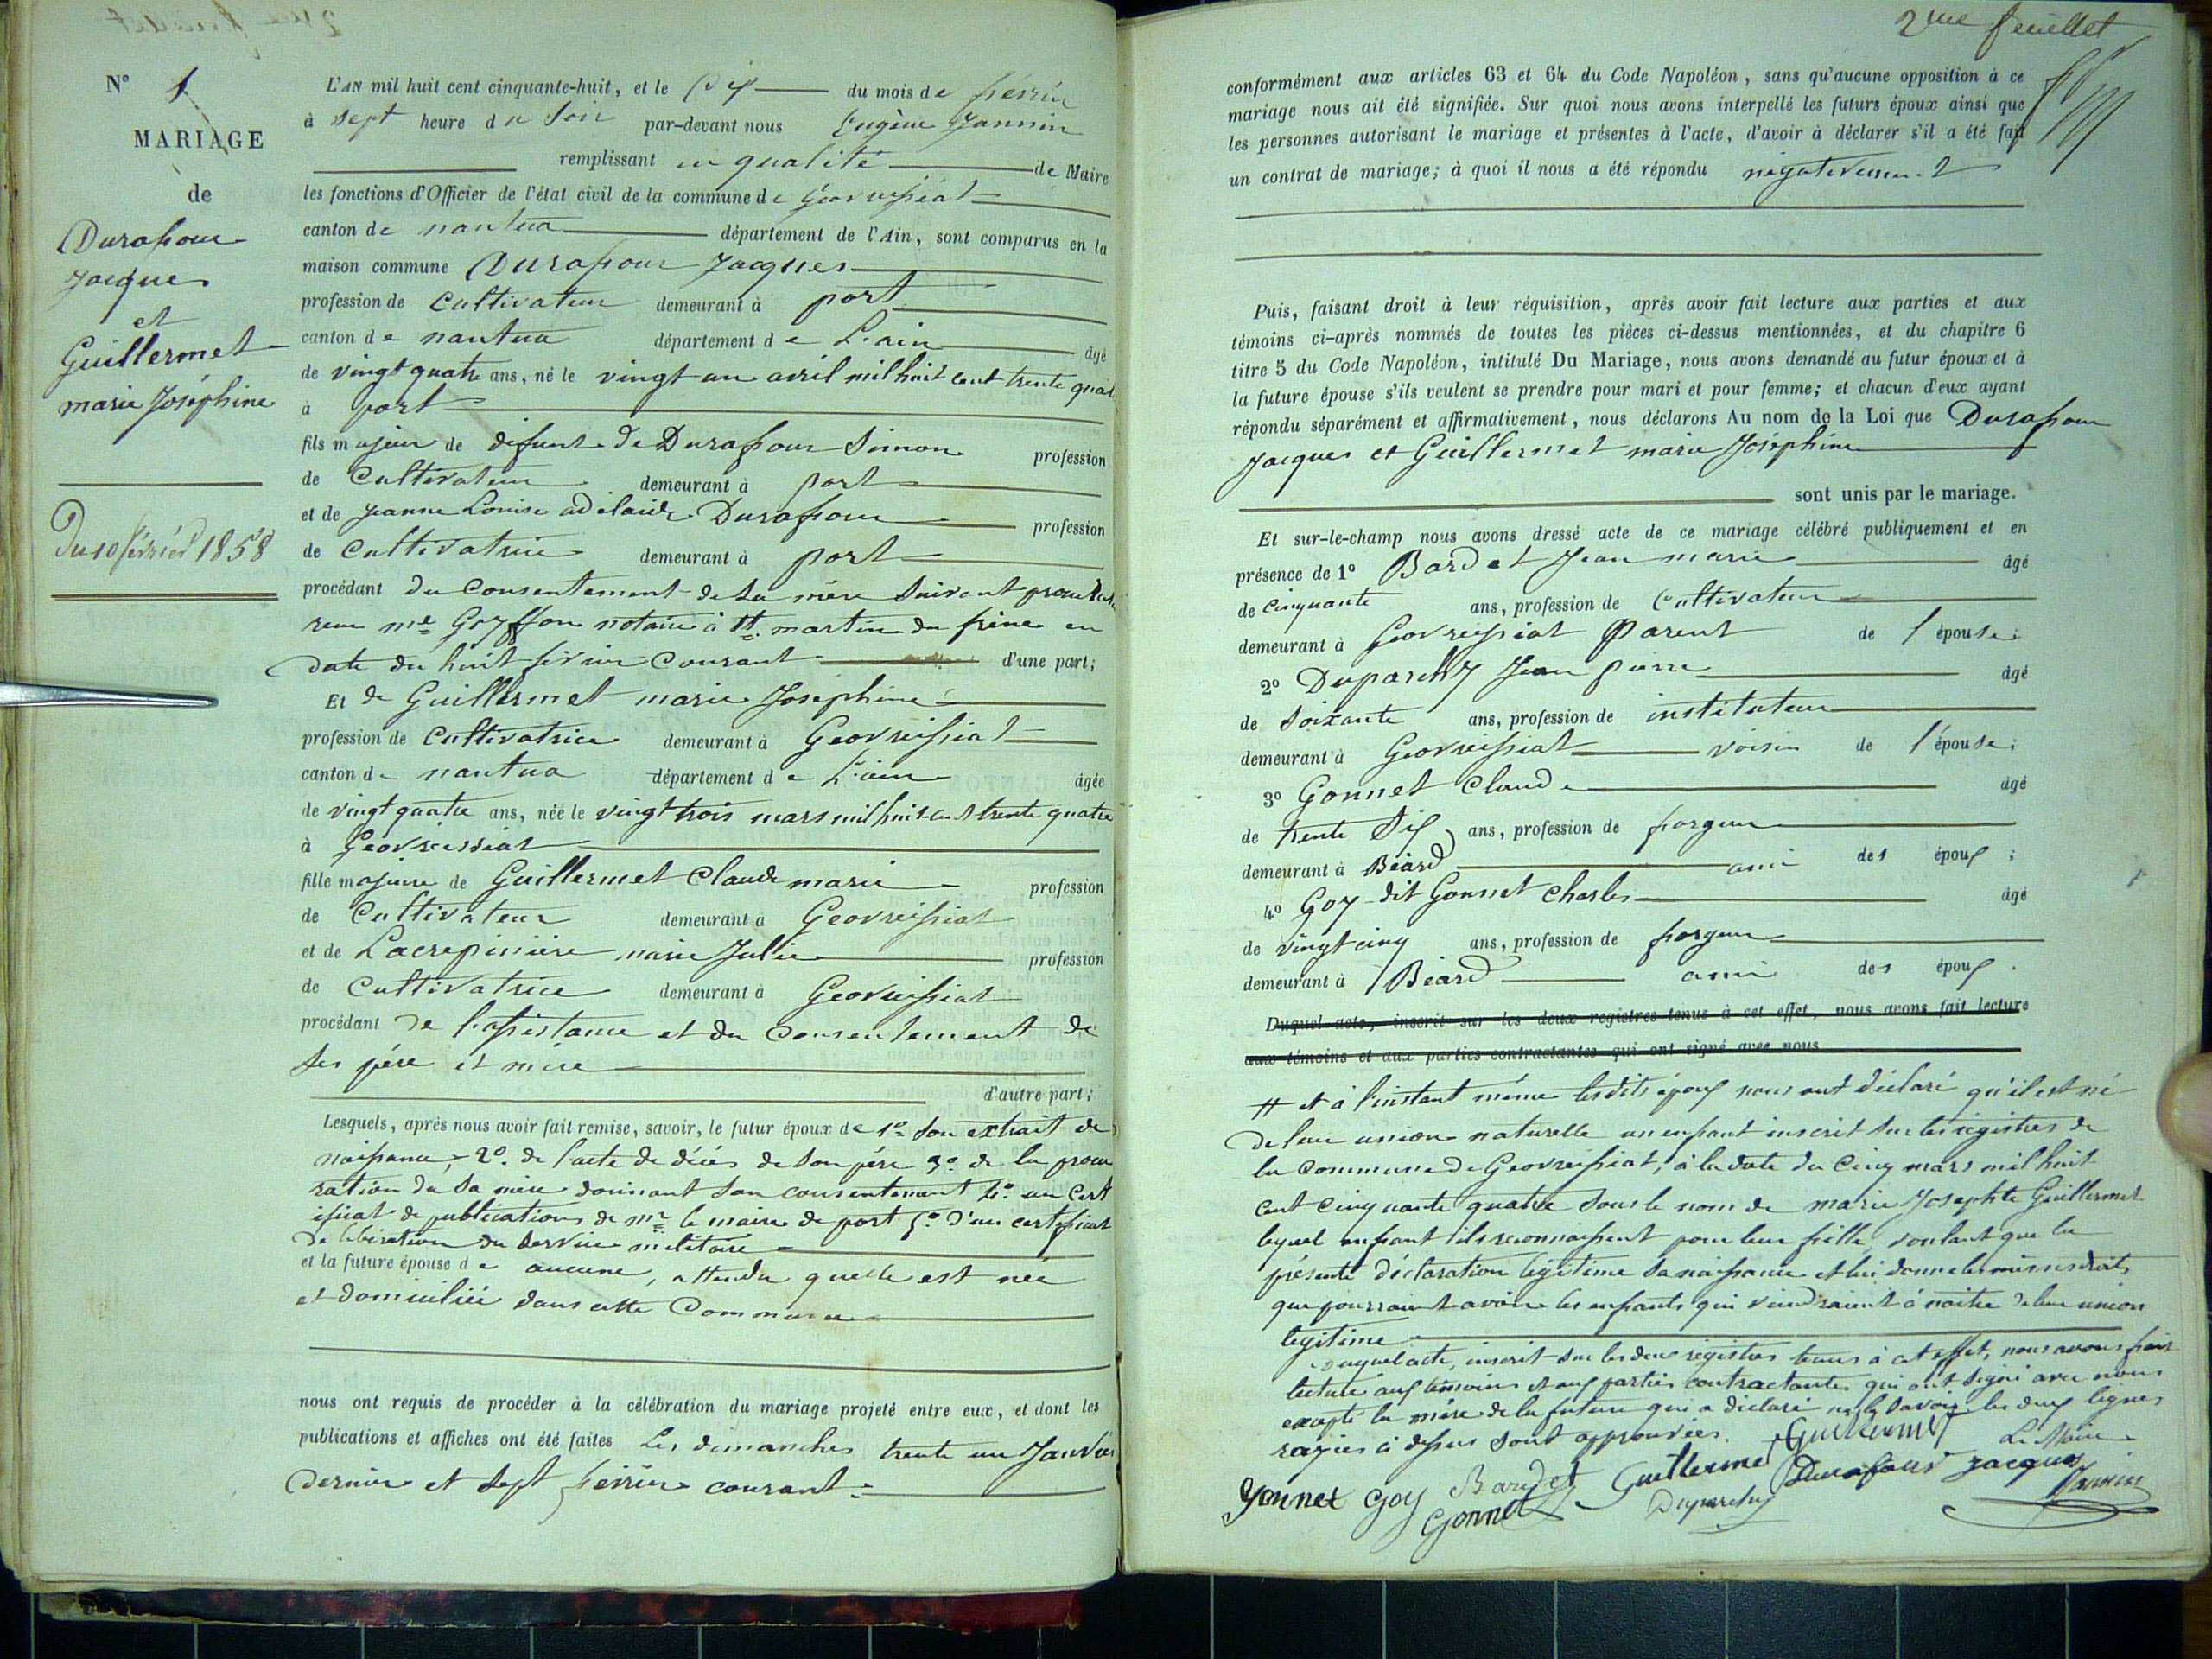 N° 1
MARIAGE
de
Durafour
Jacques
et
Guillermet
marie Joséphine
Du 10 février 1858
L'AN mil huit cent cinquante-huit, et le Dix du mois de février
à sept heure du Soir par-devant nous Eugène Jannin
remplissant en qualité de Maire
les fonctions d'Officier de l'état civil de la commune de Géovreissiat
canton de nantua département de l'Ain, sont comparus en la
maison commune Durafour Jacques
profession de Cultivateur demeurant à port
canton de nantua département de L'ain âgé
de vingt quatre ans, né le vingt un avril mil huit cent trente quat
à port
fils majeur de défunt de Durafour Simon profession
de Cultivateur demeurant à port
et de Jeanne Louise adélaide Durafour profession
de Cultivatrice demeurant à port
procédant du Consentement de sa mère Suivant procu
reue me Goyffon notaire à St. martin du frène en
date du huit février Courant d'une part;
Et de Guillermet marie Joséphine
profession de Cultivatrice demeurant à Geovreissiat
canton de nantua département de L'ain âgée
de vingt quatre ans, née le vingt trois mars mil huit cent trente quatre
à Geovreissiat
fille majeure de Guillermet Claude marie profession
de Cultivateur demeurant à Geovreissiat
et de Lacrepiniere marie Julie profession
de Cultivatrice demeurant à Geovreissiat
procédant de l'assistance et du Consentement de
ses père et mère
d'autre part;
Lesquels, après nous avoir fait remise, savoir, le futur époux de 1° Son extrait de
naissance, 2°. de l'acte de décès de son père 3° de la procu
ration de Sa mère donnant son consentement 4°. un Cert
ificat de publications de mr le maire de port 5° d'un certificat
de libération du Service militaire
et la future épouse de aucune, attendu quelle est née
et domiciliée dans cette Commune
nous ont requis de procéder à la célébration du mariage projeté entre eux, et dont les
publications et affiches ont été faites Les dimanches trente un Janvier
dernier et Sept février courant
2me feuillet
conformément aux articles 63 et 64 du Code Napoléon, sans qu'aucune opposition à ce
mariage nous ait été signifiée. Sur quoi nous avons interpellé les futurs époux ainsi que
les personnes autorisant le mariage et présentes à l'acte, d'avoir à déclarer s'il a été fait
un contrat de mariage; à quoi il nous a été répondu négativement
Puis, faisant droit à leur réquisition, après avoir fait lecture aux parties et aux
témoins ci-après nommés de toutes les pièces ci-dessus mentionnées, et du chapitre 6
titre 5 du Code Napoléon, intitulé Du Mariage, nous avons demandé au futur époux et à
la future épouse s'ils veulent se prendre pour mari et pour femme; et chacun d'eux ayant
répondu séparément et affirmativement, nous déclarons Au nom de la Loi que Durafour
Jacques et Guillermet marie Joséphine
sont unis par le mariage.
Et sur-le-champ nous avons dressé acte de ce mariage célébré publiquement et en
présence de 1° Bardet Jean marie âgé
de cinquante ans, profession de Cultivateur
demeurant à Geovreissiat Parent de l'épouse;
2° Duparchy Jean pierre âgé
de Soixante ans, profession de instituteur
demeurant à Geovreissiat voisin de l'épouse;
3° Gonnet Claude âgé
de trente Six ans, profession de forgeur
demeurant à Béard ami des époux;
4° Goy dit Gonnet Charles âgé
de vingt cinq ans, profession de forgeur
demeurant à Béard ami des époux.
Duquel acte, inscrit sur les deux registres tenus à cet effet, nous avons fait lecture
aux témoins et aux parties contractantes qui ont signé avec nous
# et à l'instant même lesdits époux nous ont déclaré qu'il est né
de leur union naturelle un enfant inscrit Sur les registres de
la Commune de Geovreissiat, à la date du Cinq mars mil huit
cent cinquante quatre Sous le nom de marie Josephte Guillermet
lequel enfant ils reconnaissent pour leur fille voulant que la
présente déclaration légitime Sa naissance et lui donne les mêmes droits
que pourraient avoir les enfants qui viendraient à naitre de leur union
légitime
Duquel acte, inscrit Sur les deux registres tenus à cet effet, nous avons fait
lecture aux témoins et aux parties contractantes qui ont signé avec nous
excepté la mère de la future qui a déclaré ne le savoir les deux lignes
rayées ci dessus sont approuvées. Guillermet Le Maire
Gonnet Goy Bardet Guillermet Durafour Jacques
Gonnet Duparchy Jannin